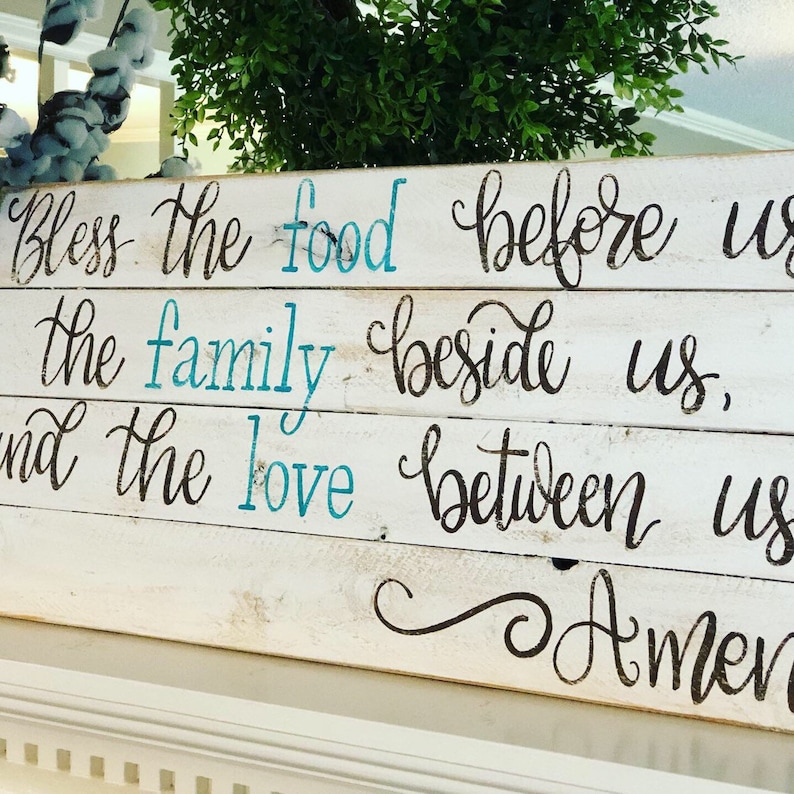 Bless the food before us
the family beside us,
and the love between us
Amen